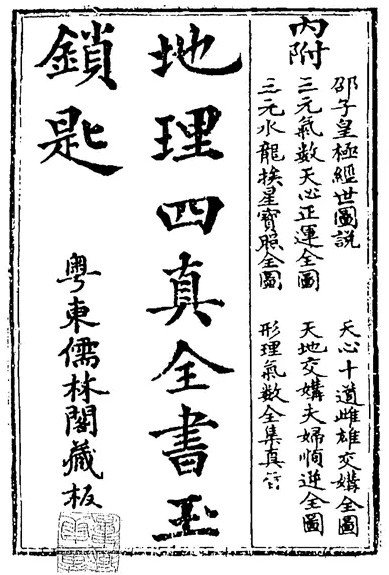 內附
邵子皇極經世圖說
三元氣數天心正運全圖
三元水龍挨星寶照全圖
天心十道雌雄交媾全圖
天地交媾夫婦順逆全圖
形理氣數全集真
地理四真全書玉
鎖匙
粵東儒林閣藏板